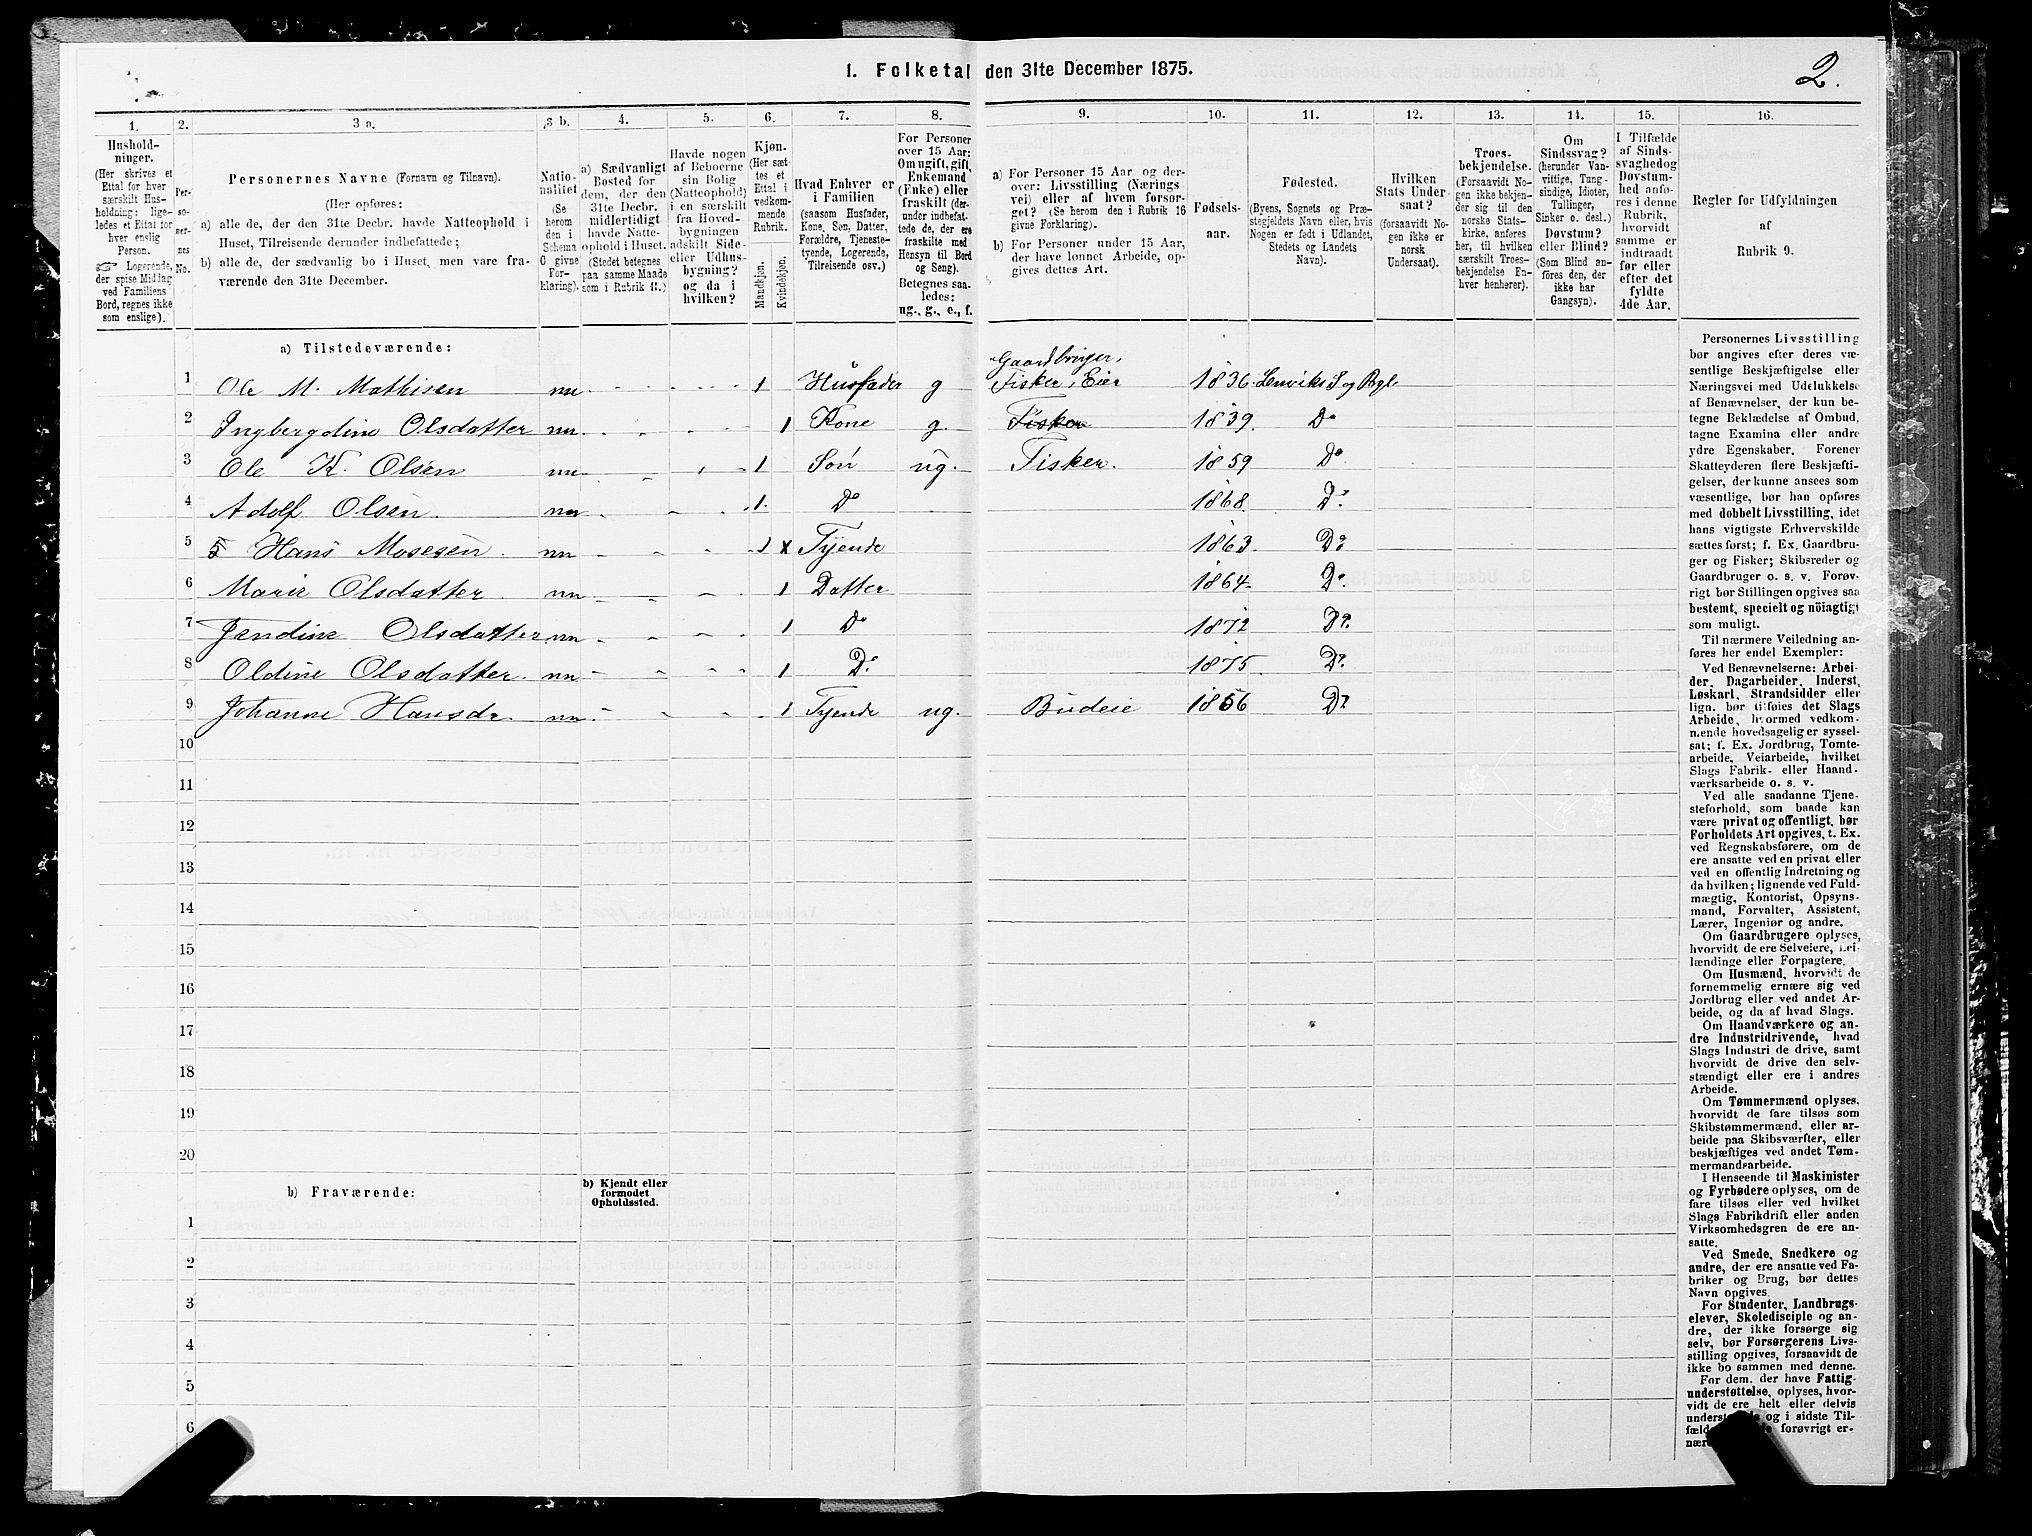 1. Folketal den 31te December 1875.
2.
1.
2.
3 a.
3 b.
4.
5.
6.
7.
8.
9.
10.
11.
12.
13.
14.
15.
16.
Hushold-
ninger.
(Her skrives et
Ettal for hver
særskilt Hus-
holdning; lige-
ledes et Ettal for
hver enslig
Person.
☞ Logerende,
der spise Middag
ved Familiens
Bord, regnes ikke
som enslige).
Per-
so-
ner-
nes
No.
Personernes Navne (Fornavn og Tilnavn).
(Her opføres:
a) alle de, der den 31te Decbr. havde Natteophold i
Huset, Tilreisende derunder indbefattede;
b) alle de, der sædvanlig bo i Huset, men vare fra-
værende den 31te December.
Natio-
nalitet
(Se
herom
den i
Schema
O givne
For-
klaring).
a) Sædvanligt
Bosted for
dem, der den
31te Decbr.
midlertidigt
havde Natte-
ophold i Huset.
(Stedet betegnes
paa samme Maade
som i Rubrik 11.)
Havde nogen
af Beboerne
sin Bolig
(Natteophold)
i en særskilt
fra Hoved-
bygningen
adskilt Side-
eller Udhus-
bygning?
og da i
hvilken?
Kjøn.
(Her sæt-
tes et
Ettal i
vedkom-
mende
Rubrik.
Mandkjøn.
Kvindekjøn.
Hvad Enhver er
i Familien
(saasom Husfader,
Kone, Søn, Datter,
Forældre, Tjeneste-
tyende, Logerende,
Tilreisende osv.)
For Personer
over 15 Aar:
Om ugift, gift,
Enkemand
(Enke) eller
fraskilt (der-
under indbefat-
tede de, der ere
fraskilte med
Hensyn til Bord
og Seng).
Betegnes saa-
ledes:
ug., g., e., f.
a) For Personer 15 Aar og der-
over: Livsstilling (Nærings-
vei) eller af hvem forsør-
get? (Se herom den i Rubrik 16
givne Forklaring).
b) For Personer under 15 Aar,
der have lønnet Arbeide, op-
gives dettes Art.
Fødsels-
aar.
Fødested.
(Byens, Sognets og Præ-
stegjeldets Navn eller, hvis
Nogen er født i Udlandet,
Stedets og Landets
Navn).
Hvilken
Stats Under-
saat?
(forsaavidt No-
gen ikke er
norsk
Undersaat).
Troes-
bekjendelse.
(Forsaavidt No-
gen ikke bekjen-
der sig til den
norske Stats-
kirke, anføres
her, til hvilken
særskilt Troes-
bekjendelse En-
hver henhører).
Om
Sindssvag?
(herunder Van-
vittige, Tung-
sindige, Idioter,
Tullinger,
Sinker o. desl.)
Døvstum?
eller Blind?
(Som Blind an-
føres den, der
ikke har
Gangsyn).
I Tilfælde
af Sinds-
svaghed og
Døvstum-
hed anfø-
res i denne
Rubrik,
hvorvidt
samme er
indtraadt
før eller
efter det
fyldte
4de Aar.
Regler for Udfyldningen
af
Rubrik 9.
a) Tilstedeværende:
Gaardbruger,
1 Ole M. Mathisen nn 1 Husfader g Fisker, Eier 1836 Lenviks S og Pgl.
2 Ingbergdine Olsdatter nn. 1 Kone g. Fisker 1839. Do
3 Ole K. Olsen nn 1 Søn ug. Fisker. 1859 Do.
4 Adolf Olsen. nn 1. Do 1868. Do.
5 5 Hans Mosesen nn 1 x Tyende 1863. Do
6 Marie Olsdatter nn 1 Datter 1864. Do.
7 Jendine Olsdatter nn 1 Do 1872 Do.
8 Oldine Olsdatter. nn 1 Do. 1875. Do.
9 Johanne Hansdr nn. 1 Tyende ug. Budeie 1856 Do
10
11
12
13
14
15
16
17
18
19
20
b) Fraværende:
b) Kjendt eller
formodet
Opholdssted.
1
2
3
4
5
6
Personernes Livsstilling
bør angives efter deres væ-
sentlige Beskjæftigelse eller
Næringsvei med Udelukkelse
af Benævnelser, der kun be-
tegne Beklædelse af Ombud,
tagne Examina eller andre
ydre Egenskaber. Forener
Skatteyderen flere Beskjæfti-
gelser, der kunne ansees som
væsentlige, bør han opføres
med dobbelt Livsstilling, idet
hans vigtigste Erhvervskilde
sættes først; f. Ex. Gaardbru-
ger og Fisker; Skibsreder og
Gaardbruger o. s. v. Forøv-
rigt bør Stillingen opgives saa
bestemt, specielt og nöiagtigt
som muligt.
Til nærmere Veiledning an-
føres her endel Exempler:
Ved Benævnelserne: Arbei-
der, Dagarbeider, Inderst,
Løskarl, Strandsidder eller
lign. bør tilføies det Slags
Arbeide, hvormed vedkom-
mende hovedsagelig er syssel-
sat; f. Ex. Jordbrug, Tomte-
arbeide, Veiarbeide, hvilket
Slags Fabrik- eller Haand-
værksarbeide o. s. v.
Ved alle saadanne Tjene-
steforhold, som baade kan
være privat og offentligt, bør
Forholdets Art opgives, t. Ex.
ved Regnskabsførere, om de
ere ansatte ved en privat eller
ved en offentlig Indretning og
da hvilken; lignende ved Fuld-
mægtig, Kontorist, Opsyns-
mand, Forvalter, Assistent,
Lærer, Ingeniør og andre.
Om Gaardbrugere oplyses,
hvorvidt de ere Selveiere, Lei-
lændinge eller Forpagtere.
Om Husmænd, hvorvidt de
fornemmelig ernære sig ved
Jordbrug eller ved andet Ar-
beide, og da af hvad Slags.
Om Haandværkere og an-
dre Industridrivende, hvad
Slags Industri de drive, samt
hvorvidt de drive den selv-
stændigt eller ere i andres
Arbeide.
Om Tømmermænd oplyses,
hvorvidt de fare tilsøs som
Skibstømmermænd, eller ar-
beide paa Skibsværfter, eller
beskjæftiges ved andet Tøm-
mermandsarbeide.
I Henseende til Maskinister
og Fyrbødere oplyses, om de
fare tilsøs eller ved hvilket
Slags Fabrikdrift eller anden
Virksomhedsgren de ere an-
satte.
Ved Smede, Snedkere og
andre, der ere ansatte ved Fa-
briker og Brug, bør dettes
Navn opgives.
For Studenter, Landbrugs-
elever, Skoledisciple og an-
dre, der ikke forsørge sig
selv, bør Forsørgerens Livs-
stilling opgives, forsaavidt de
ikke bo sammen med denne.
For dem, der have Fattig-
understøttelse, oplyses, hvor-
vidt de ere helt eller delvis
og i sidste Til-
forøvrigt er-